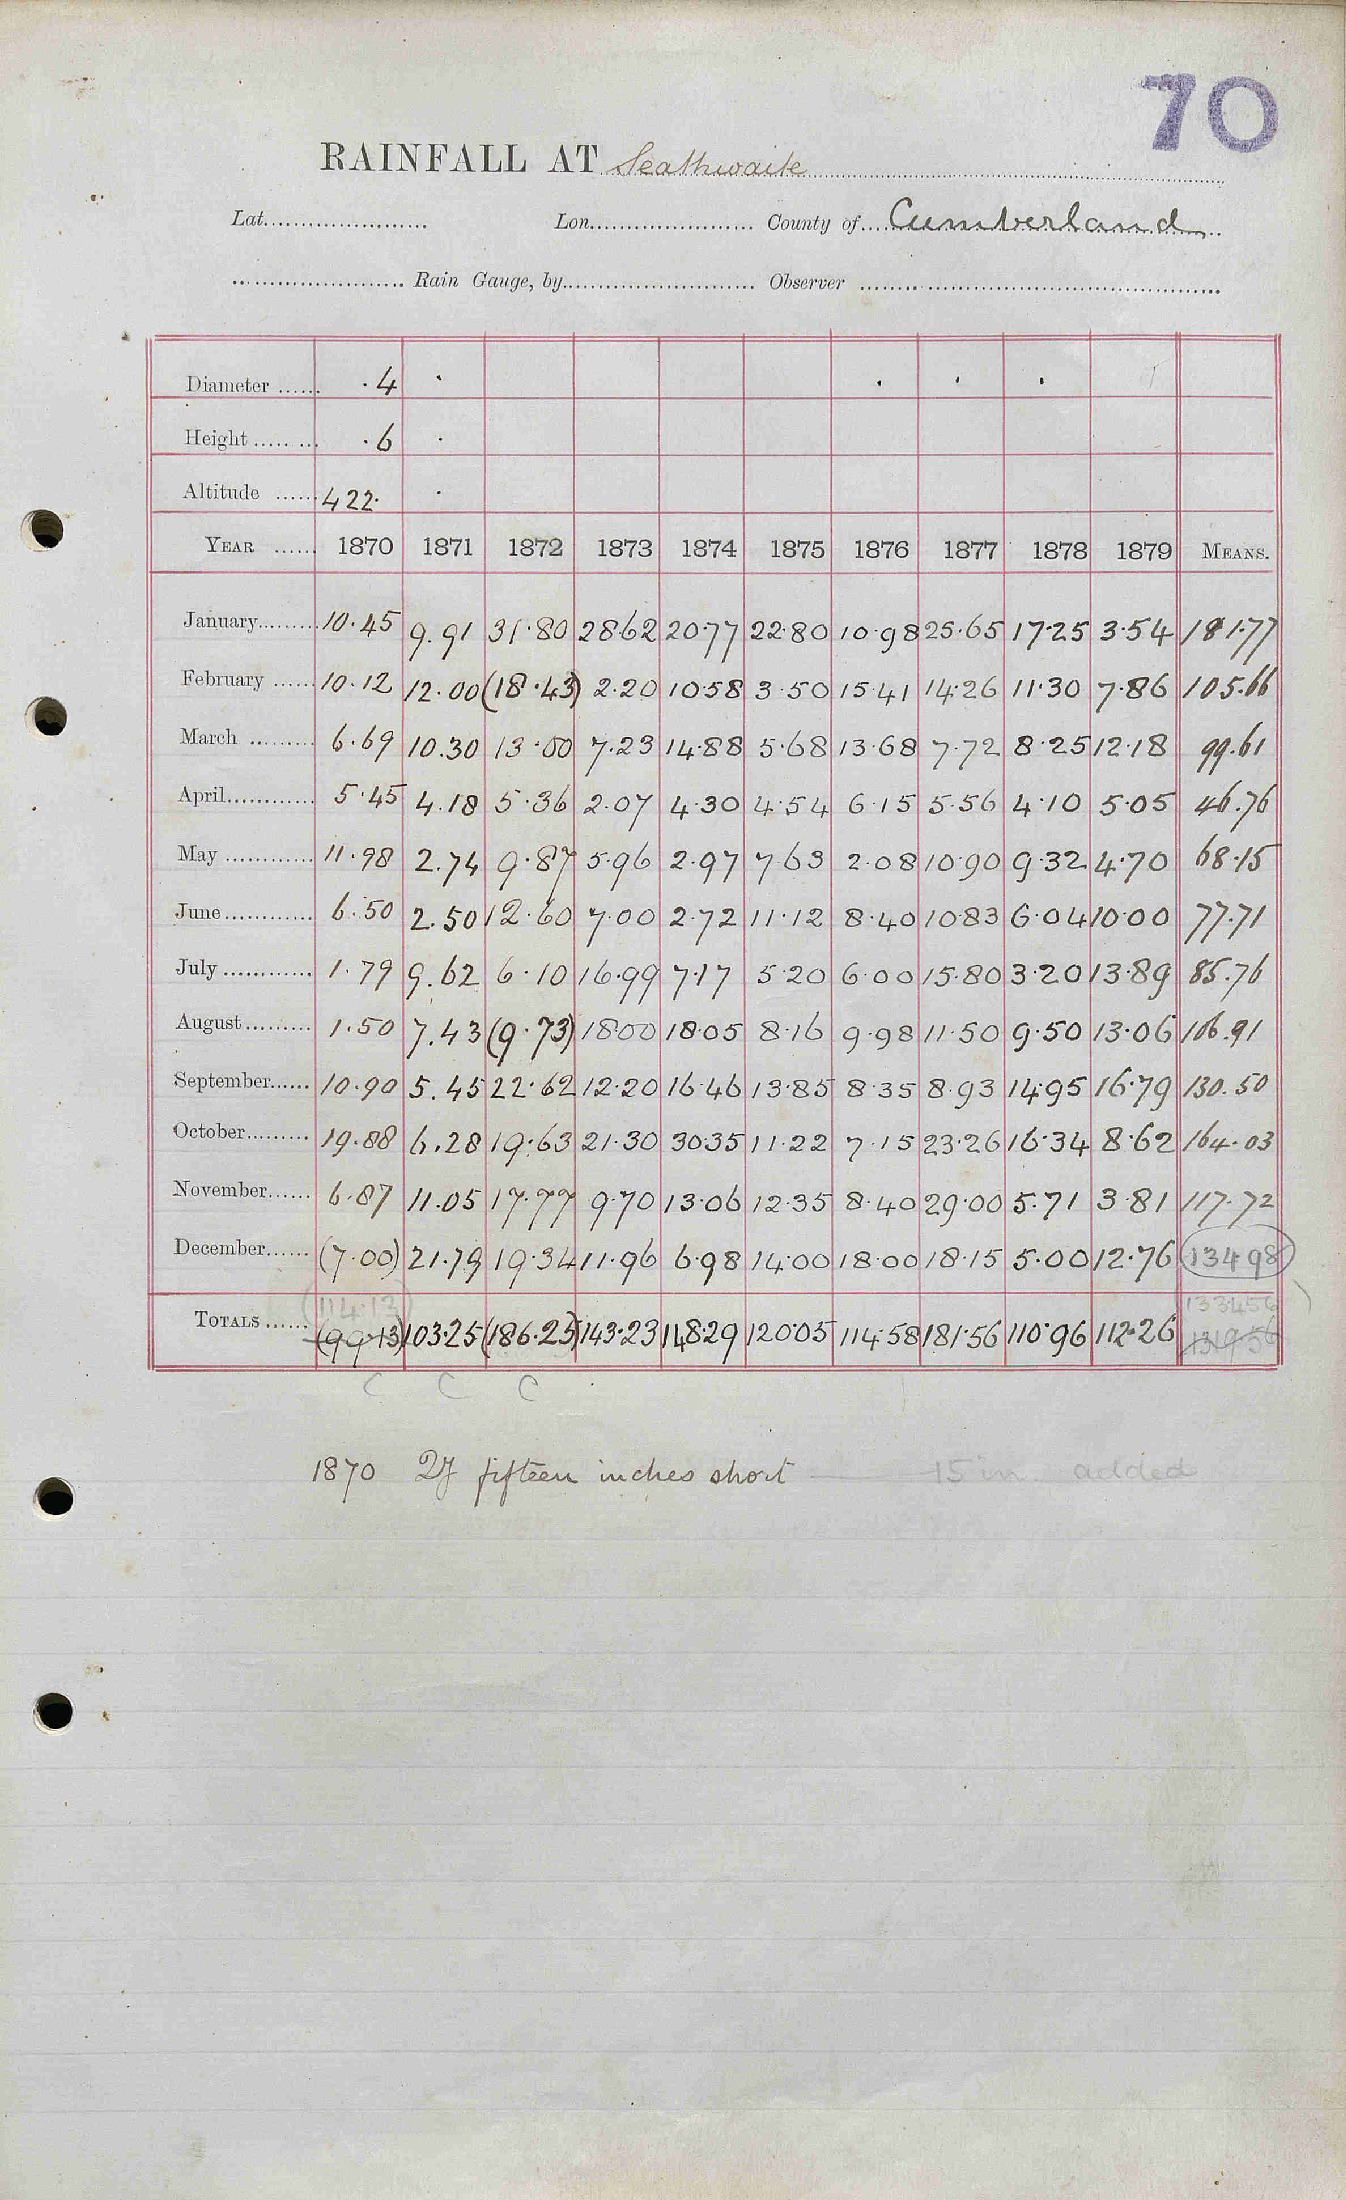 70
RAINFALL AT Seathwaite
Lat. Lon. County of Cumberland
Rain Gauge, by Observer
Diameter ·4
Height ·6
Altitude 422·
YEAR 1870 1871 1872 1873 1874 1875 1876 1877 1878 1879 MEANS.
January 10·45 9.91 31·80 28·62 20·77 22·80 10·98 25·65 17·25 3·54 181·77
February 10·12 12.00 (18·43) 2·20 10·58 3·50 15·41 14·26 11·30 7·86 105·66
March 6·69 10.30 13·00 7·23 14·88 5·68 13·68 7·72 8·25 12·18 99·61
April 5·45 4.18 5·36 2·07 4·30 4·54 6·15 5·56 4·10 5·05 46·76
May 11·98 2.74 9·87 5·96 2·97 7·63 2·08 10·90 9·32 4·70 68·15
June 6·50 2.50 12·60 7·00 2·72 11·12 8·40 10·83 6·04 10·00 77·71
July 1·79 9.62 6·10 16·99 7·17 5·20 6·00 15·80 3·20 13·89 85·76
August 1·50 7.43 (9·73) 18·00 18·05 8·16 9·98 11·50 9·50 13·06 106·91
September 10·90 5.45 22·62 12·20 16·46 13·85 8·35 8·93 14·95 16·79 130·50
October 19·88 6.28 19·63 21·30 30·35 11·22 7·15 23·26 16·34 8·62 164·03
November 6·87 11.05 17·77 9·70 13·06 12·35 8·40 29·00 5·71 3·81 117·72
December (7·00) 21.79 19·34 11·96 6·98 14·00 18·00 18·15 5·00 12·76 134·98
(114·13) 1334·56
TOTALS (99·13) 103·25 (186·25) 143·23 148·29 120·05 114·58 181·56 110·96 112·26 1319·56
C C C
1870 If fifteen inches short — 15 in added